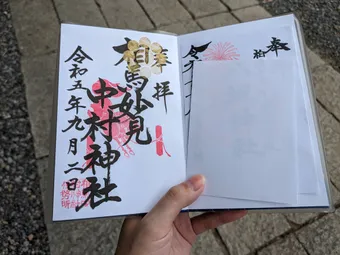 奉拝
相馬妙見
中村神社
令和五年九月二日
奉
拾
令